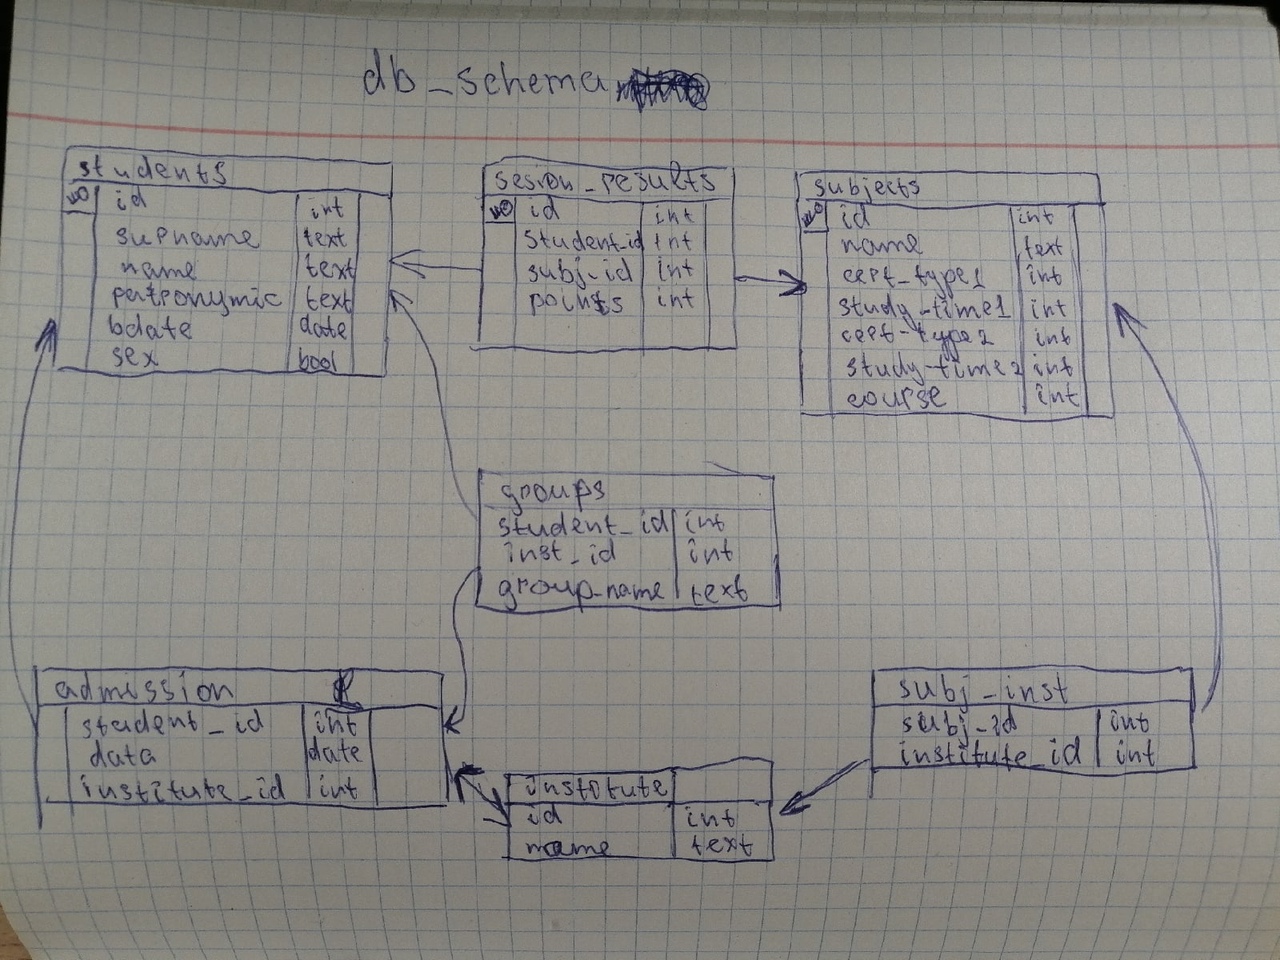 db_schema
students
id int
surname text
name text
patronymic text
bdate date
sex bool
session_results
id int
student_id int
subj_id int
points int
subjects
id int
name text
cert_type1 int
study_time1 int
cert_type2 int
study_time2 int
course int
groups
student_id int
inst_id int
group_name text
admission
student_id int
data date
institute_id int
institute
id int
name text
subj_inst
subj_id int
institute_id int